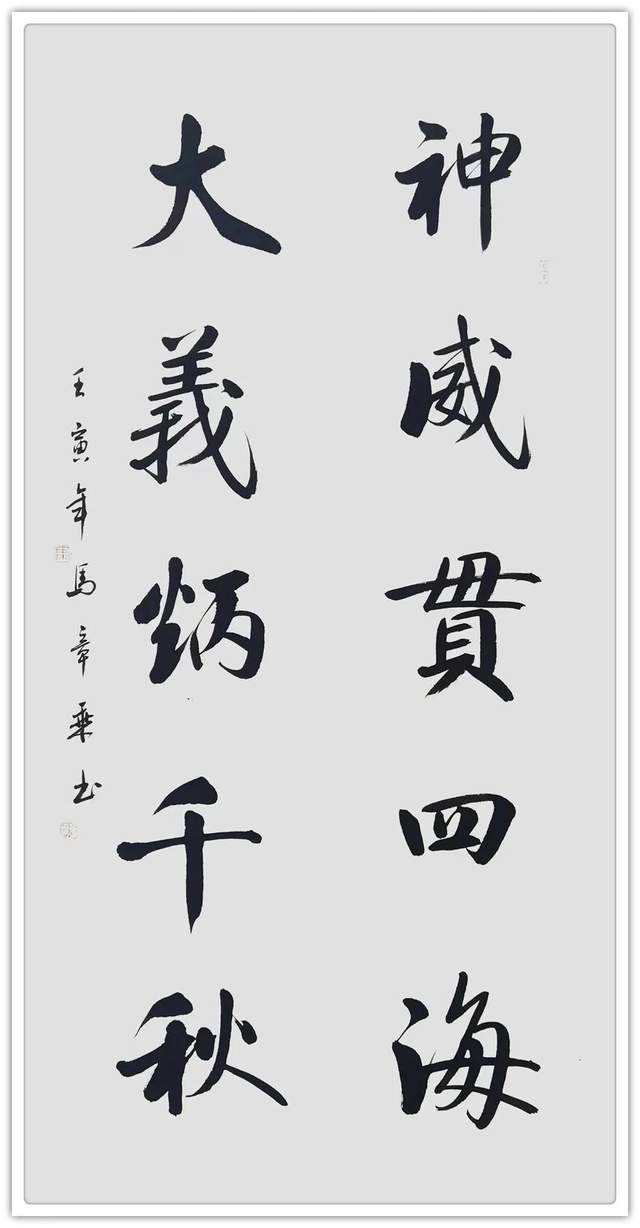 神威貫四海
大義炳千秋
壬寅年馬章乘书